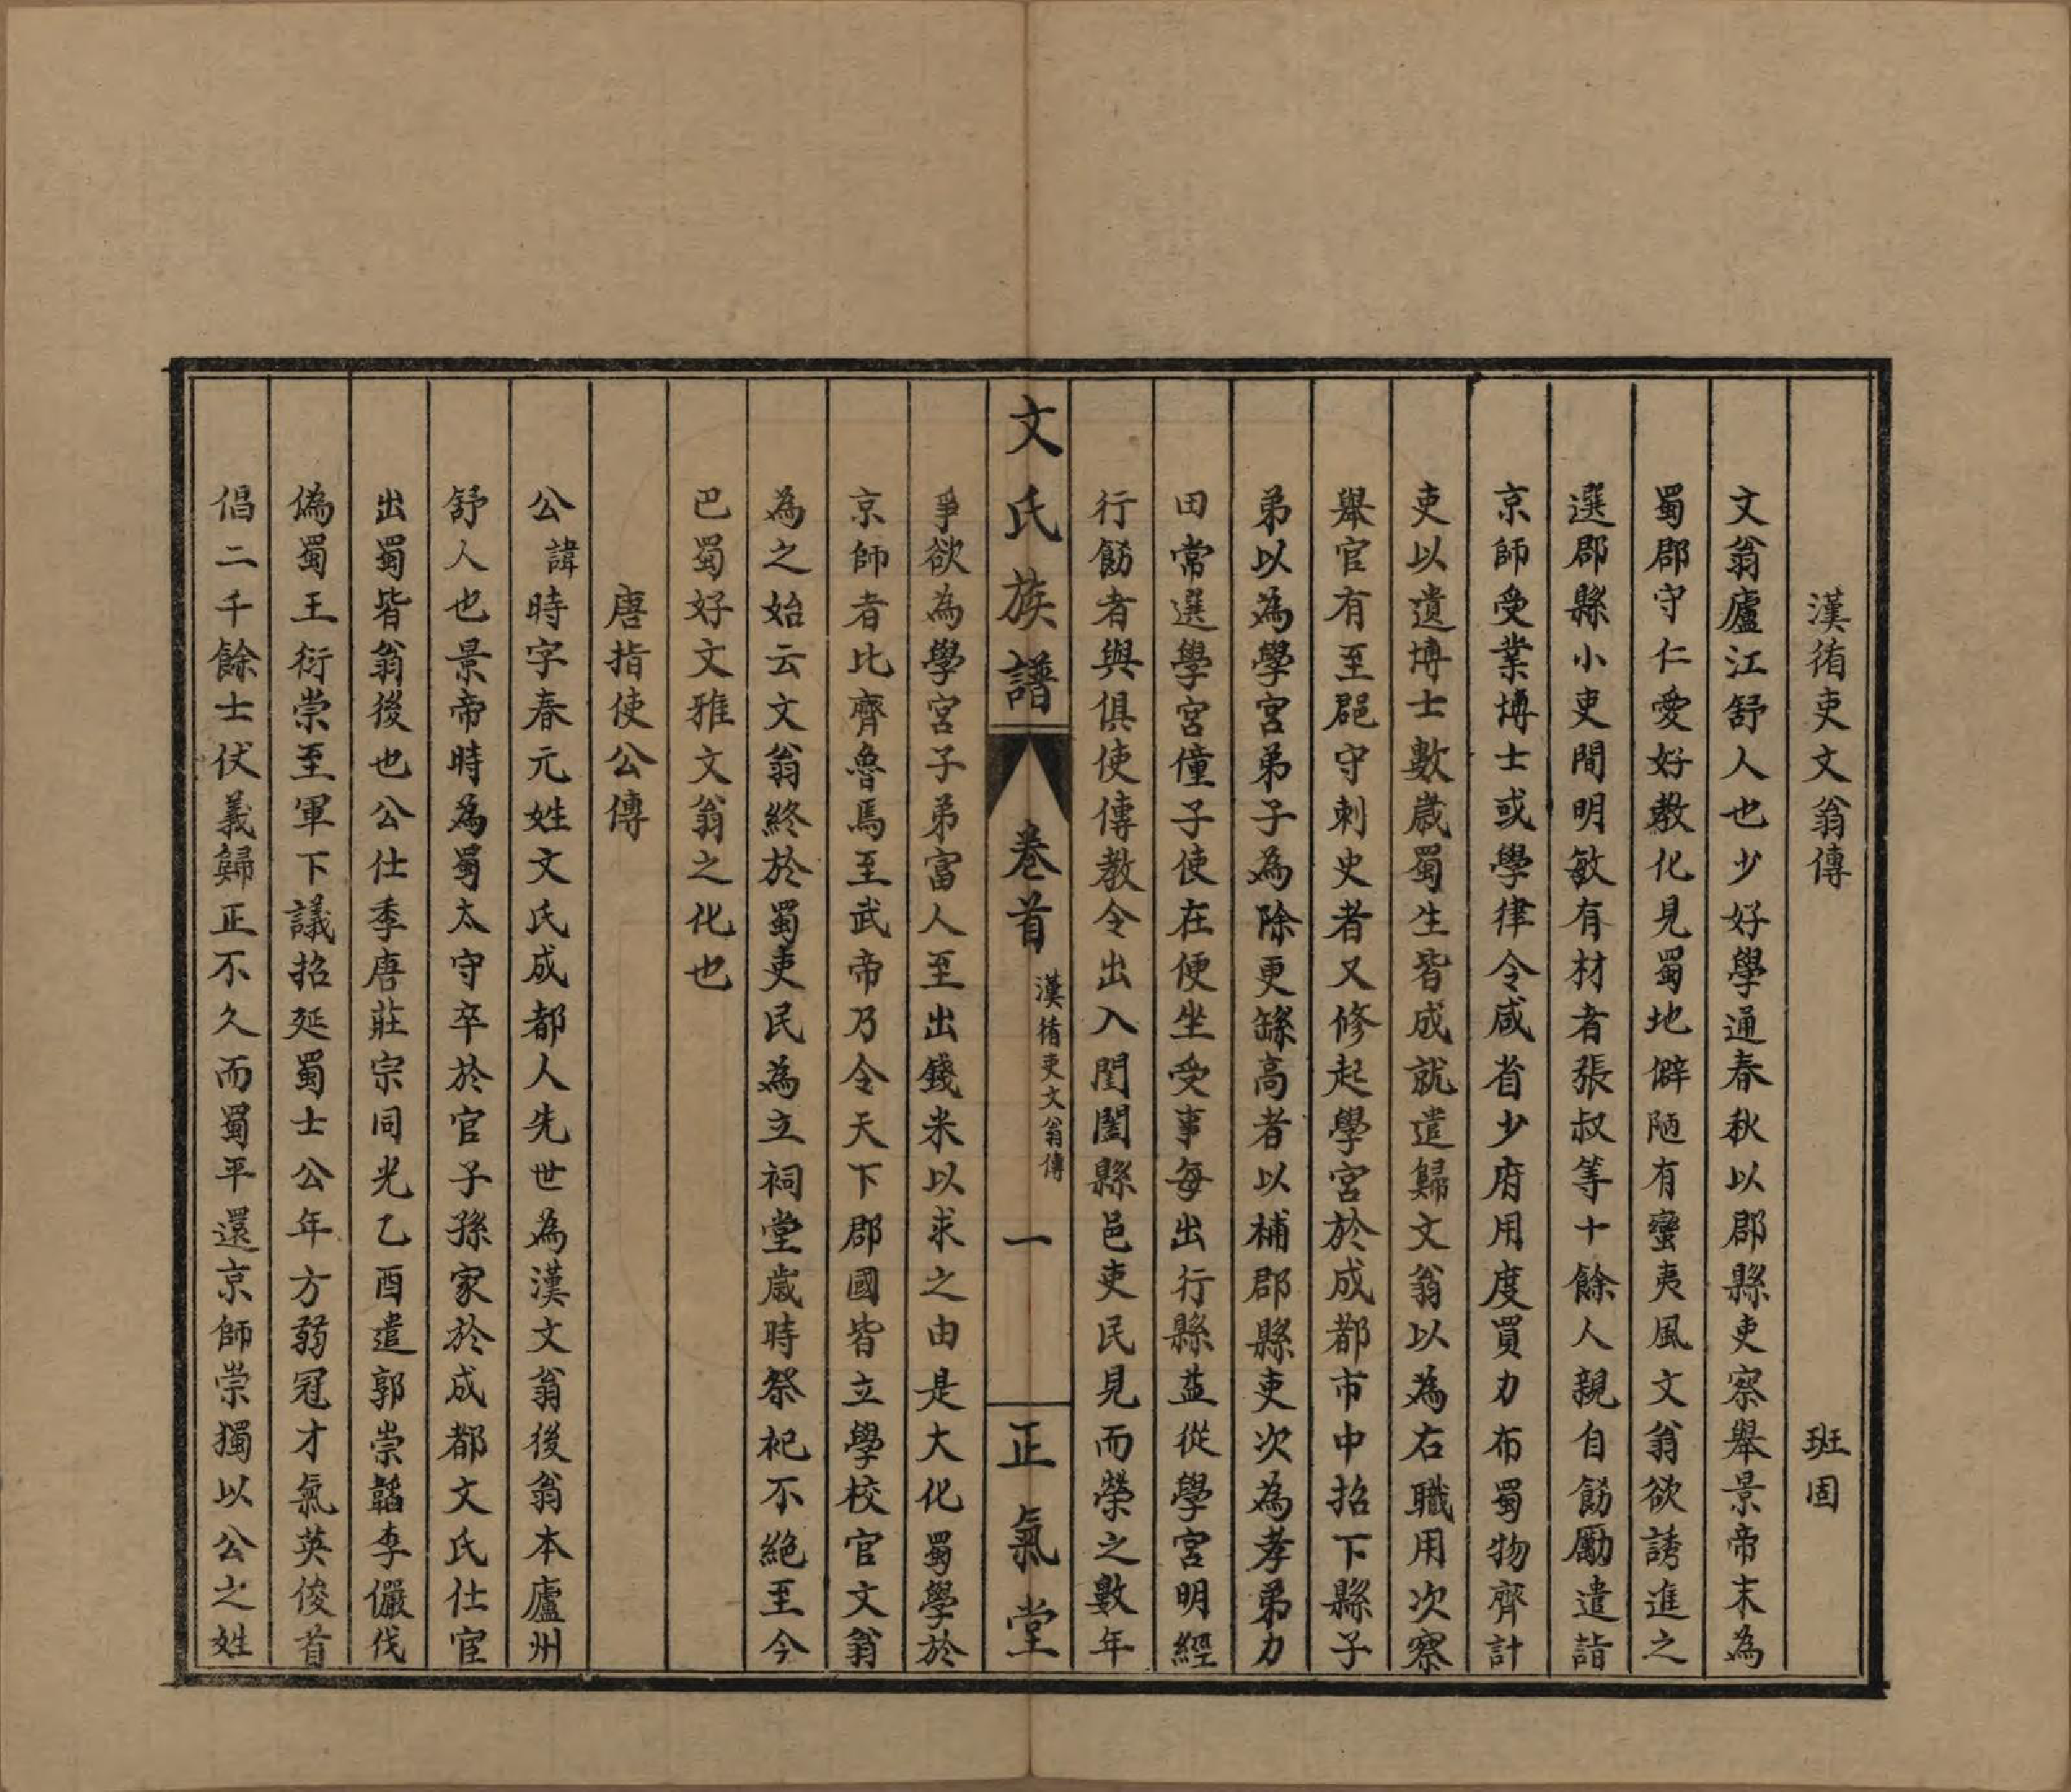 漢循吏文翁傳　班固
文翁廬江舒人也少好學通春秋以郡縣吏察舉景帝末為
蜀郡守仁愛好教化見蜀地僻陋有蠻夷風文翁欲誘進之
選郡縣小吏開明敏有材者張叔等十餘人親自飭勵遣詣
京師受業博士或學律令咸省少府用度買力布蜀物齊計
吏以遺博士數歲蜀生皆成就遣歸文翁以為右職用次察
舉官有至郡守刺史者又修起學宮於成都市中招下縣子
弟以為學宮弟子為除更繇高者以補郡縣吏次為孝弟力
田常選學宮僮子使在便坐受事每出行縣益從學宮明經
行飭者與俱使傳教令出入閨閣縣邑吏民見而榮之數年
文氏族譜　卷首　漢循吏文翁傳　一　正氣堂
爭欲為學宮子弟富人至出錢米以求之由是大化蜀學於
京師者比齊魯焉至武帝乃令天下郡國皆立學校官文翁
為之始云文翁終於蜀吏民為立祠堂歲時祭祀不絕至今
巴蜀好文雅文翁之化也
唐指使公傳
公諱時字春元姓文氏成都人先世為漢文翁後翁本廬州
舒人也景帝時為蜀太守卒於官子孫家於成都文氏仕宦
出蜀皆翁後也公仕季唐莊宗同光乙酉遣郭崇韜李儼伐
偽蜀王衍崇至軍下議招延蜀士公年方弱冠才氣英俊首
倡二千餘士伏義歸正不久而蜀平還京師崇獨以公之姓